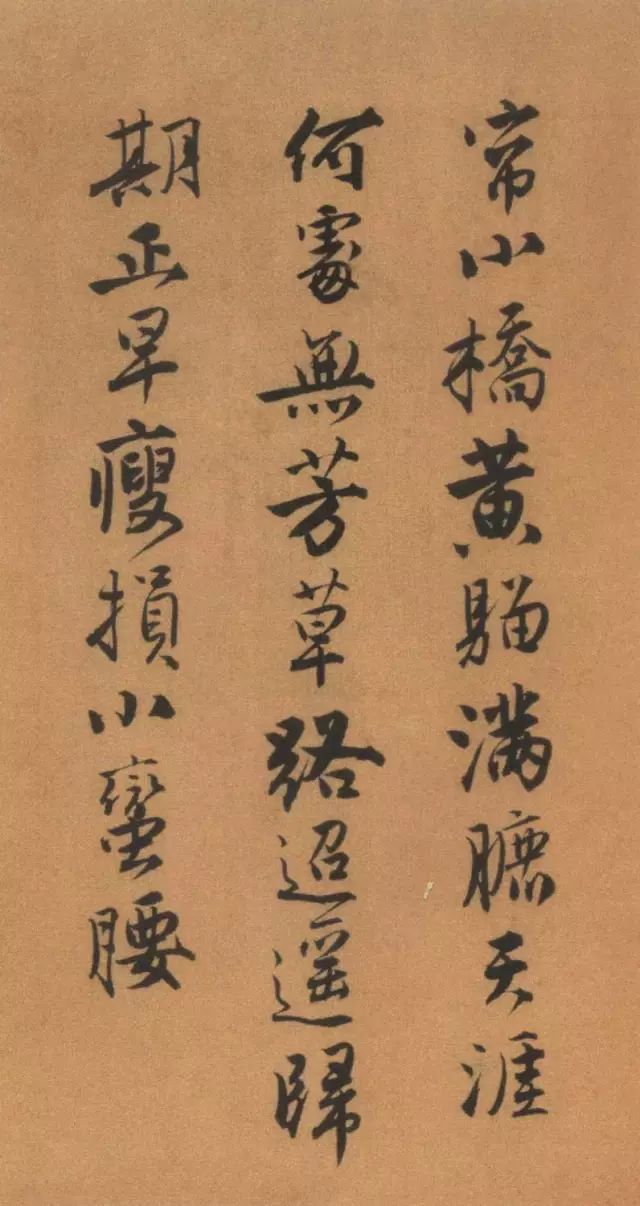 小橋黃滿天涯
何處無芳草路迢遥歸
期正早瘦損小蠻腰